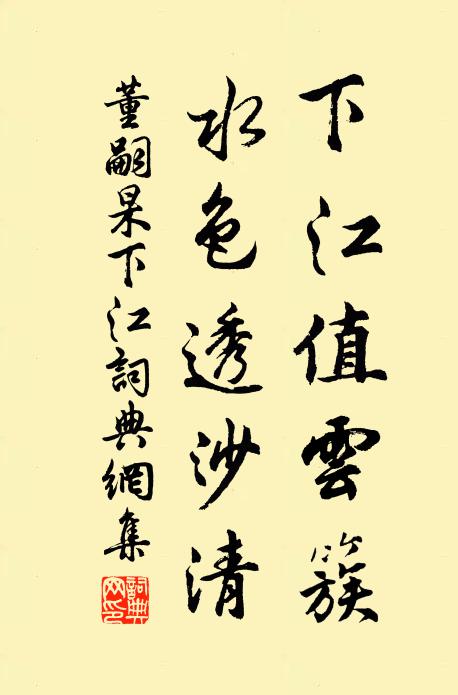 下江值雲簇
水色透沙清
董嗣杲下江詞典網集